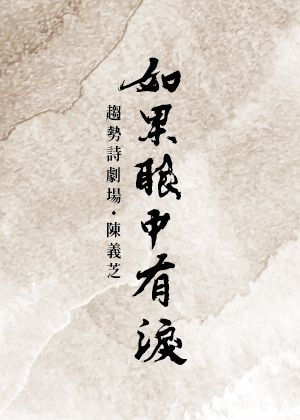 如果眼中有淚
趨勢詩劇場・陳義芝